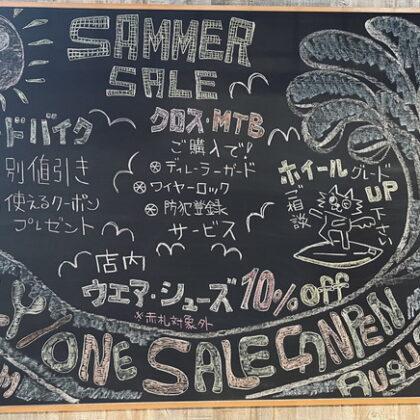 SAMMER
SALE
ドバイク
別値引き
使えるクーポン
プレゼント
クロス・MTB
ご購入で!
ディーラーガード
ワイヤーロック
防犯登録
サービス
ホイールグレード
UP
ご相談
下さい
店内
ウエア・シューズ 10% off
※赤札対象外
LY/ONE SALE CANPEN
AUGU